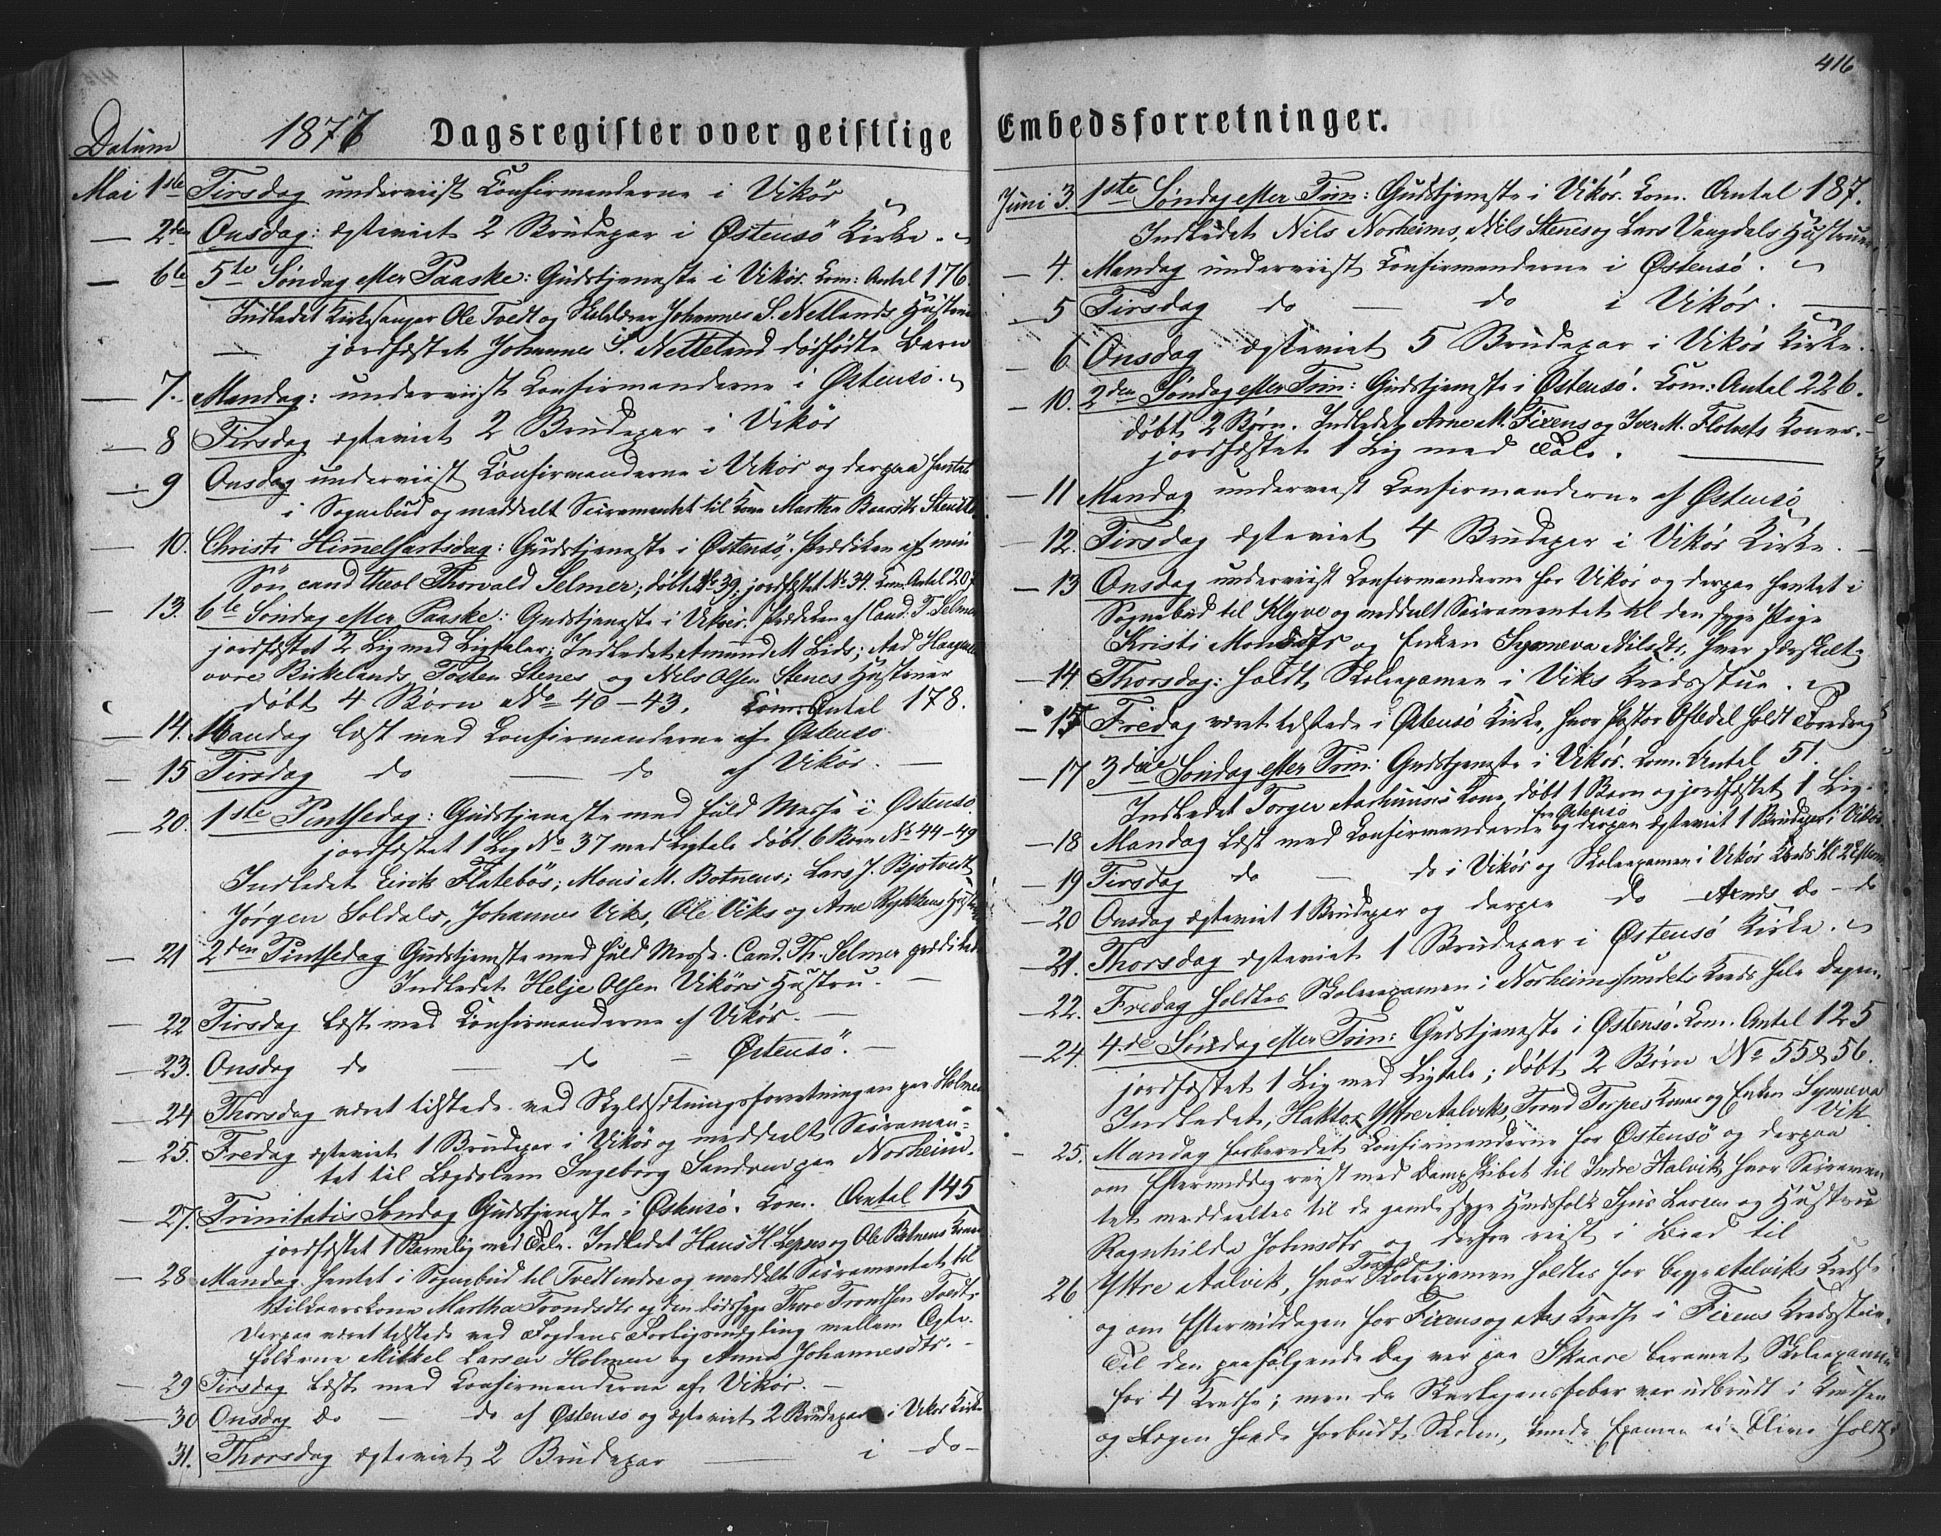 416
1877 Dagsregister over geistlige Embedsforretninger.
Datum
Mai 1ste Tirsdag underviist Confirmanderne i Vikør
— 2den Onsdag: ægteviet 2 Brudepar i Østensø Kirke.
— 6te 5te Søndag efter Paaske: Gudstjeneste i Vikør. Kom: Antal 176.
Indledet Kirkesanger Ole Tvedt og Skolelærer Johannes S. Netlands Hustruer
— jordfæstet Johannes S. Netteland dødfødte Barn
— 7. Mandag: underviist Confirmanderne i Østensø.
— 8 Tirsdag ægteviet 2 Brudepar i Vikør
— 9 Onsdag underviist Confirmanderne i Vikør og derpaa hentet
i Sognebud og meddeelt Sacramentet til Kone Martha
— 10. Christi Himmelfartsdag: Gudstjeneste i Østensø. Prædiken af min
Søn cand theol Thorvald Selmer; døbt No 39; jordfæstet No 34. Kom. Antal 207
— 13. 6te Søndag efter Paaske: Gudstjeneste i Vikør. Prædiken af Cand. T. Selmer
jordfæstet 2 Lig med Ligtaler; Indledet Amund M Lids; Aad
øvre Birkelands, Tosten Stenes og Nils Olsen Stenes Hustruer
døbt 4 Børn No 40-43. Kom: Antal 178.
— 14. Mandag læst med Confirmanderne af Østensø
— 15 Tirsdag do — do af Vikør. —
— 20. 1ste Pintsedag: Gudstjeneste med fuld Messe i Østensø.
jordfæstet 1 Lig No 37 med Ligtale døbt 6 Børn No 44-49
Indledet Eirik Flatebøs; Mons M. Botnens; Lars J. Bjotvedt
Jørgen Soldals, Johannes Viks, Ole Viks og Arne Rykkens Hustruer
— 21 2den Pintsedag Gudstjeneste med fuld Messe. Cand. Th. Selmer prædikede
Indledet Helje Olsen Vikørs Hustru. —
— 22 Tirsdag læst med Confirmanderne af Vikør. —
— 23. Onsdag do — do — Østensø. —
— 24 Thorsdag været tilstede ved Skyldsætningsforretningen paa Holmen
— 25. Fredag ægteviet 1 Brudepar i Vikør og meddeelt Sacramen-
tet til Lægdslem Ingeborg Sandven paa Norheim.
— 27. Trinitatis Søndag Gudstjeneste i Østensø. Kom. Antal 145
jordfæstet 1 Barnelig med Tale. Indledet Hans H Lepses og Ole Botnens Koner
— 28 Mandag. hentet i Sognebud til Tvedt indre og meddelt Sacramentet til
Vilkaarskone Martha Trondsdtr og den dødssyge Thore Trondsen Tvedt.
Derpaa været tilstede ved Fogdens Forligsmægling mellem Ægte-
folkene Mikkel Larsen Holmen og Anna Johannesdtr. —
— 29 Tirsdag læst med Confirmanderne af Vikør. —
— 30 Onsdag do — do af Østensø og ægteviet 2 Brudepar i Vikør Kirke
31. Thorsdag ægteviet 2 Brudepar — i do —
Juni 3. 1ste Søndag efter Trin: Gudstjeneste i Vikør. Kom. Antal 187.
Indledet Nils Norheims, Nils Stenes og Lars Vaagdals Hustruer
— 4. Mandag underviist Confirmanderne i Østensø.
— 5 Tirsdag do — do i Vikør. —
— 6 Onsdag ægteviet 5 Brudepar i Vikør Kirke.
— 10. 2den Søndag efter Trin: Gudstjeneste i Østensø. Kom: Antal 226.
døbt 2 Børn. Indledet Arne M. Fixens og Iver M. Flotvets Koner.
jordfæstet 1 Lig med Tale. —
— 11 Mandag underviist Confirmanderne af Østensø
— 12. Tirsdag ægteviet 4 Brudepar i Vikør Kirke. —
— 13 Onsdag underviist Confirmanderne for Vikør og derpaa hentet i
Sognebud til Klyve og meddeelt Sacramentet til den syge Pige
Kristi Monsdtr og Enken Synneva Nilsdtr, hver særskilt
— 14. Thorsdag: holdt Skoleexamen i Viks Kredsstue.
— 15 Fredag været tilstede i Østensø Kirke, hvor Pastor Oftedal holdt Foredrag
— 17 3die Søndag efter Trin: Gudstjeneste i Vikør. Kom. Antal 51.
Indledet Torger Aarhuus's Kone, døbt 1 Barn og jordfæstet 1 Lig.
— 18 Mandag læst med Confirmanderne fra Østensø og derpaa ægteviet 1 Brudepar i Vikør
— 19 Tirsdag do — do i Vikør og Skoleexamen i Vikør Kreds Kl 2 Efterm
— 20 Onsdag ægteviet 1 Brudepar og derpaa do — do — do
— 21. Thorsdag ægteviet 1 Brudepar i Østensø Kirke.
— 22. Fredag holdtes Skoleexamen i Norheimssundets Kreds hele Dagen.
— 24. 4de Søndag efter Trin: Gudstjeneste i Østensø. Kom. Antal 125
jordfæstet 1 Lig med Ligtale; døbt 2 Børn No 55 & 56.
Indledet, Haktor Ytre Aalviks, Trond Torpes Koner og Enken Synneva Vik.
— 25. Mandag forberedet Confirmanderne for Østensø og derpaa
om Eftermiddag reist med Dampskibet til Indre Aalvik, hvor Sacramen-
tet meddeeltes til de gamle syge Huusfolk Sjur Larsen og Hustru
Ragnhilda Johnsdtr og derfra reist i Baad til
26 Yttre Aalvik, hvor Skoleexamen holdtes for begge Aalviks Kredse
og om Eftermiddagen for Fixens og Aas Kredse i Fixens Kredsstue.
Til den paafølgende Dag var paa Skaare berammet Skoleexamen
for 4 Kredse; men da Skarlagensfeber var udbrudt i Kredsen
og Lægen havde forbudt Skolen, kunde Examen ei blive holdt.